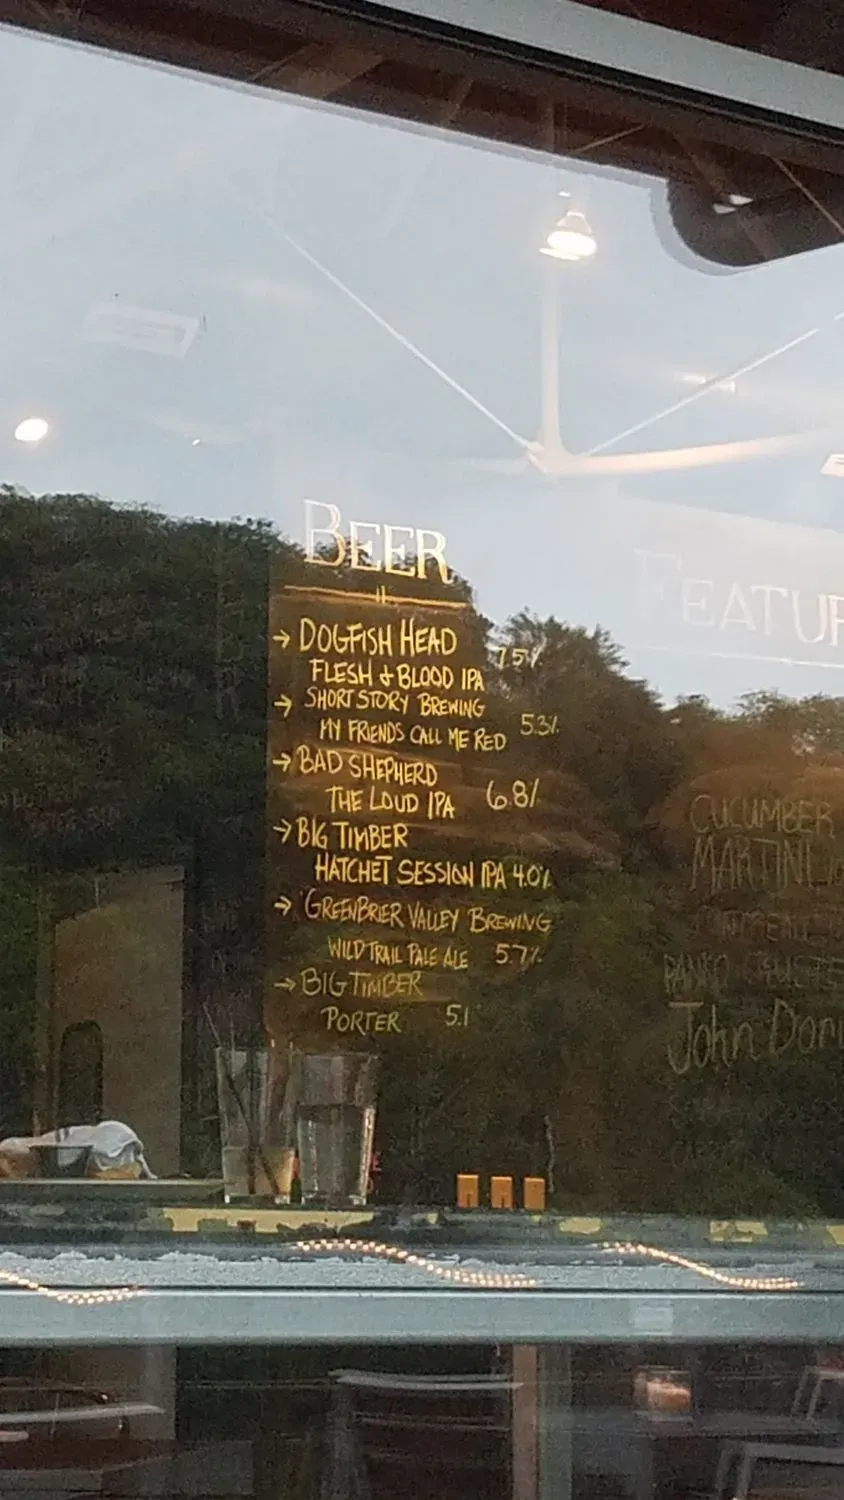 BEER
→ DOGFISH HEAD
FLESH & BLOOD IPA 7.5%
→ SHORT STORY BREWING
MY FRIENDS CALL ME RED 5.3%
→ BAD SHEPHERD
THE LOUD IPA 6.8%
→ BIG TIMBER
HATCHET SESSION IPA 4.0%
→ GREENBRIER VALLEY BREWING
WILD TRAIL PALE ALE 5.7%
→ BIG TIMBER
PORTER 5.1
FEATUR
CUCUMBER
MARTINI
John Dori